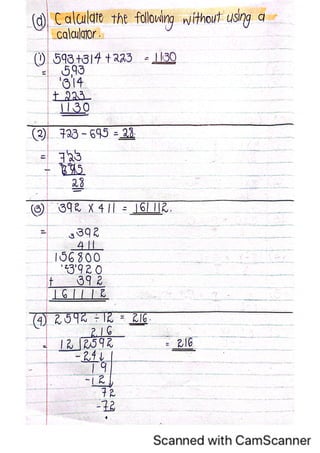 (d) Calculate the following without using a
calculator.
(1) 593+314 +223 = 1130
= 593
314
+ 223
1130
(2) 723 - 695 = 28
= 723
- 695
28
(3) 392 X 411 = 161 112.
= 392
411
156800
3920
+ 392
161112
(4) 2592 ÷ 12 = 216.
216
= 12 2592 = 216
-24
19
-12
72
-72
Scanned with CamScanner